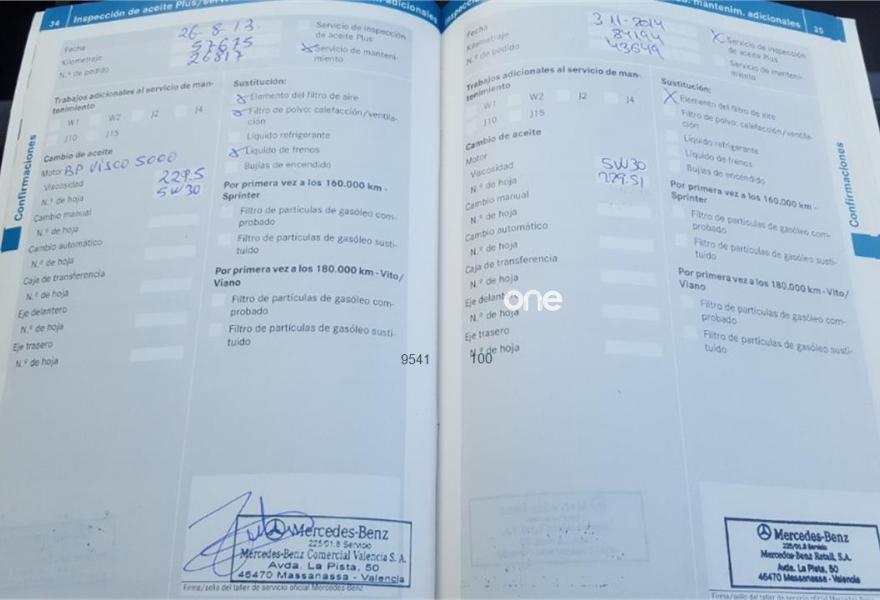 34 Inspección de aceite Plus/serv
adicionales
Fecha 26-8-13
Kilometraje 57675
N.º de pedido 26817
Servicio de inspección
de aceite Plus
Servicio de manteni-
miento
Trabajos adicionales al servicio de man-
tenimiento
W1 W2 J2 J4
J10 J15
Cambio de aceite
Motor BP VISCO 5000
229.5
Viscosidad 5W30
N.º de hoja
Cambio manual
N.º de hoja
Cambio automático
N.º de hoja
Caja de transferencia
N.º de hoja
Eje delantero
N.º de hoja
Eje trasero
N.º de hoja
Sustitución:
Elemento del filtro de aire
Filtro de polvo: calefacción/ventila-
ción
Líquido refrigerante
Líquido de frenos
Bujías de encendido
Por primera vez a los 160.000 km -
Sprinter
Filtro de partículas de gasóleo com-
probado
Filtro de partículas de gasóleo susti-
tuido
Por primera vez a los 180.000 km - Vito/
Viano
Filtro de partículas de gasóleo com-
probado
Filtro de partículas de gasóleo susti-
tuido
Confirmaciones
Mercedes-Benz
Mercedes-Benz Comercial Valencia S.A.
Avda. La Pista, 50
46470 Massanassa - Valencia
Firma/sello del taller de servicio oficial Mercedes-Benz
9541 100
one
mantenim. adicionales 35
Fecha 3-11-2014
Kilometraje
N.º de pedido 43649
Servicio de inspección
de aceite Plus
Servicio de manteni-
miento
Trabajos adicionales al servicio de man-
tenimiento
W1 W2 J2 J4
J10 J15
Cambio de aceite
Motor
Viscosidad 5W30
N.º de hoja 229.51
Cambio manual
N.º de hoja
Cambio automático
N.º de hoja
Caja de transferencia
N.º de hoja
Eje delant
N.º de hoja
Eje trasero
N.º de hoja
Sustitución:
Elemento del filtro de aire
Filtro de polvo: calefacción/ventila-
ción
Líquido refrigerante
Líquido de frenos
Bujías de encendido
Por primera vez a los 160.000 km -
Sprinter
Filtro de partículas de gasóleo com-
probado
Filtro de partículas de gasóleo susti-
tuido
Por primera vez a los 180.000 km - Vito/
Viano
Filtro de partículas de gasóleo com-
probado
Filtro de partículas de gasóleo susti-
tuido
Confirmaciones
Mercedes-Benz
Mercedes-Benz Retail, S.A.
Avda. La Pista, 50
46470 Massanassa - Valencia
Firma/sello del taller de servicio oficial Mercedes-Benz